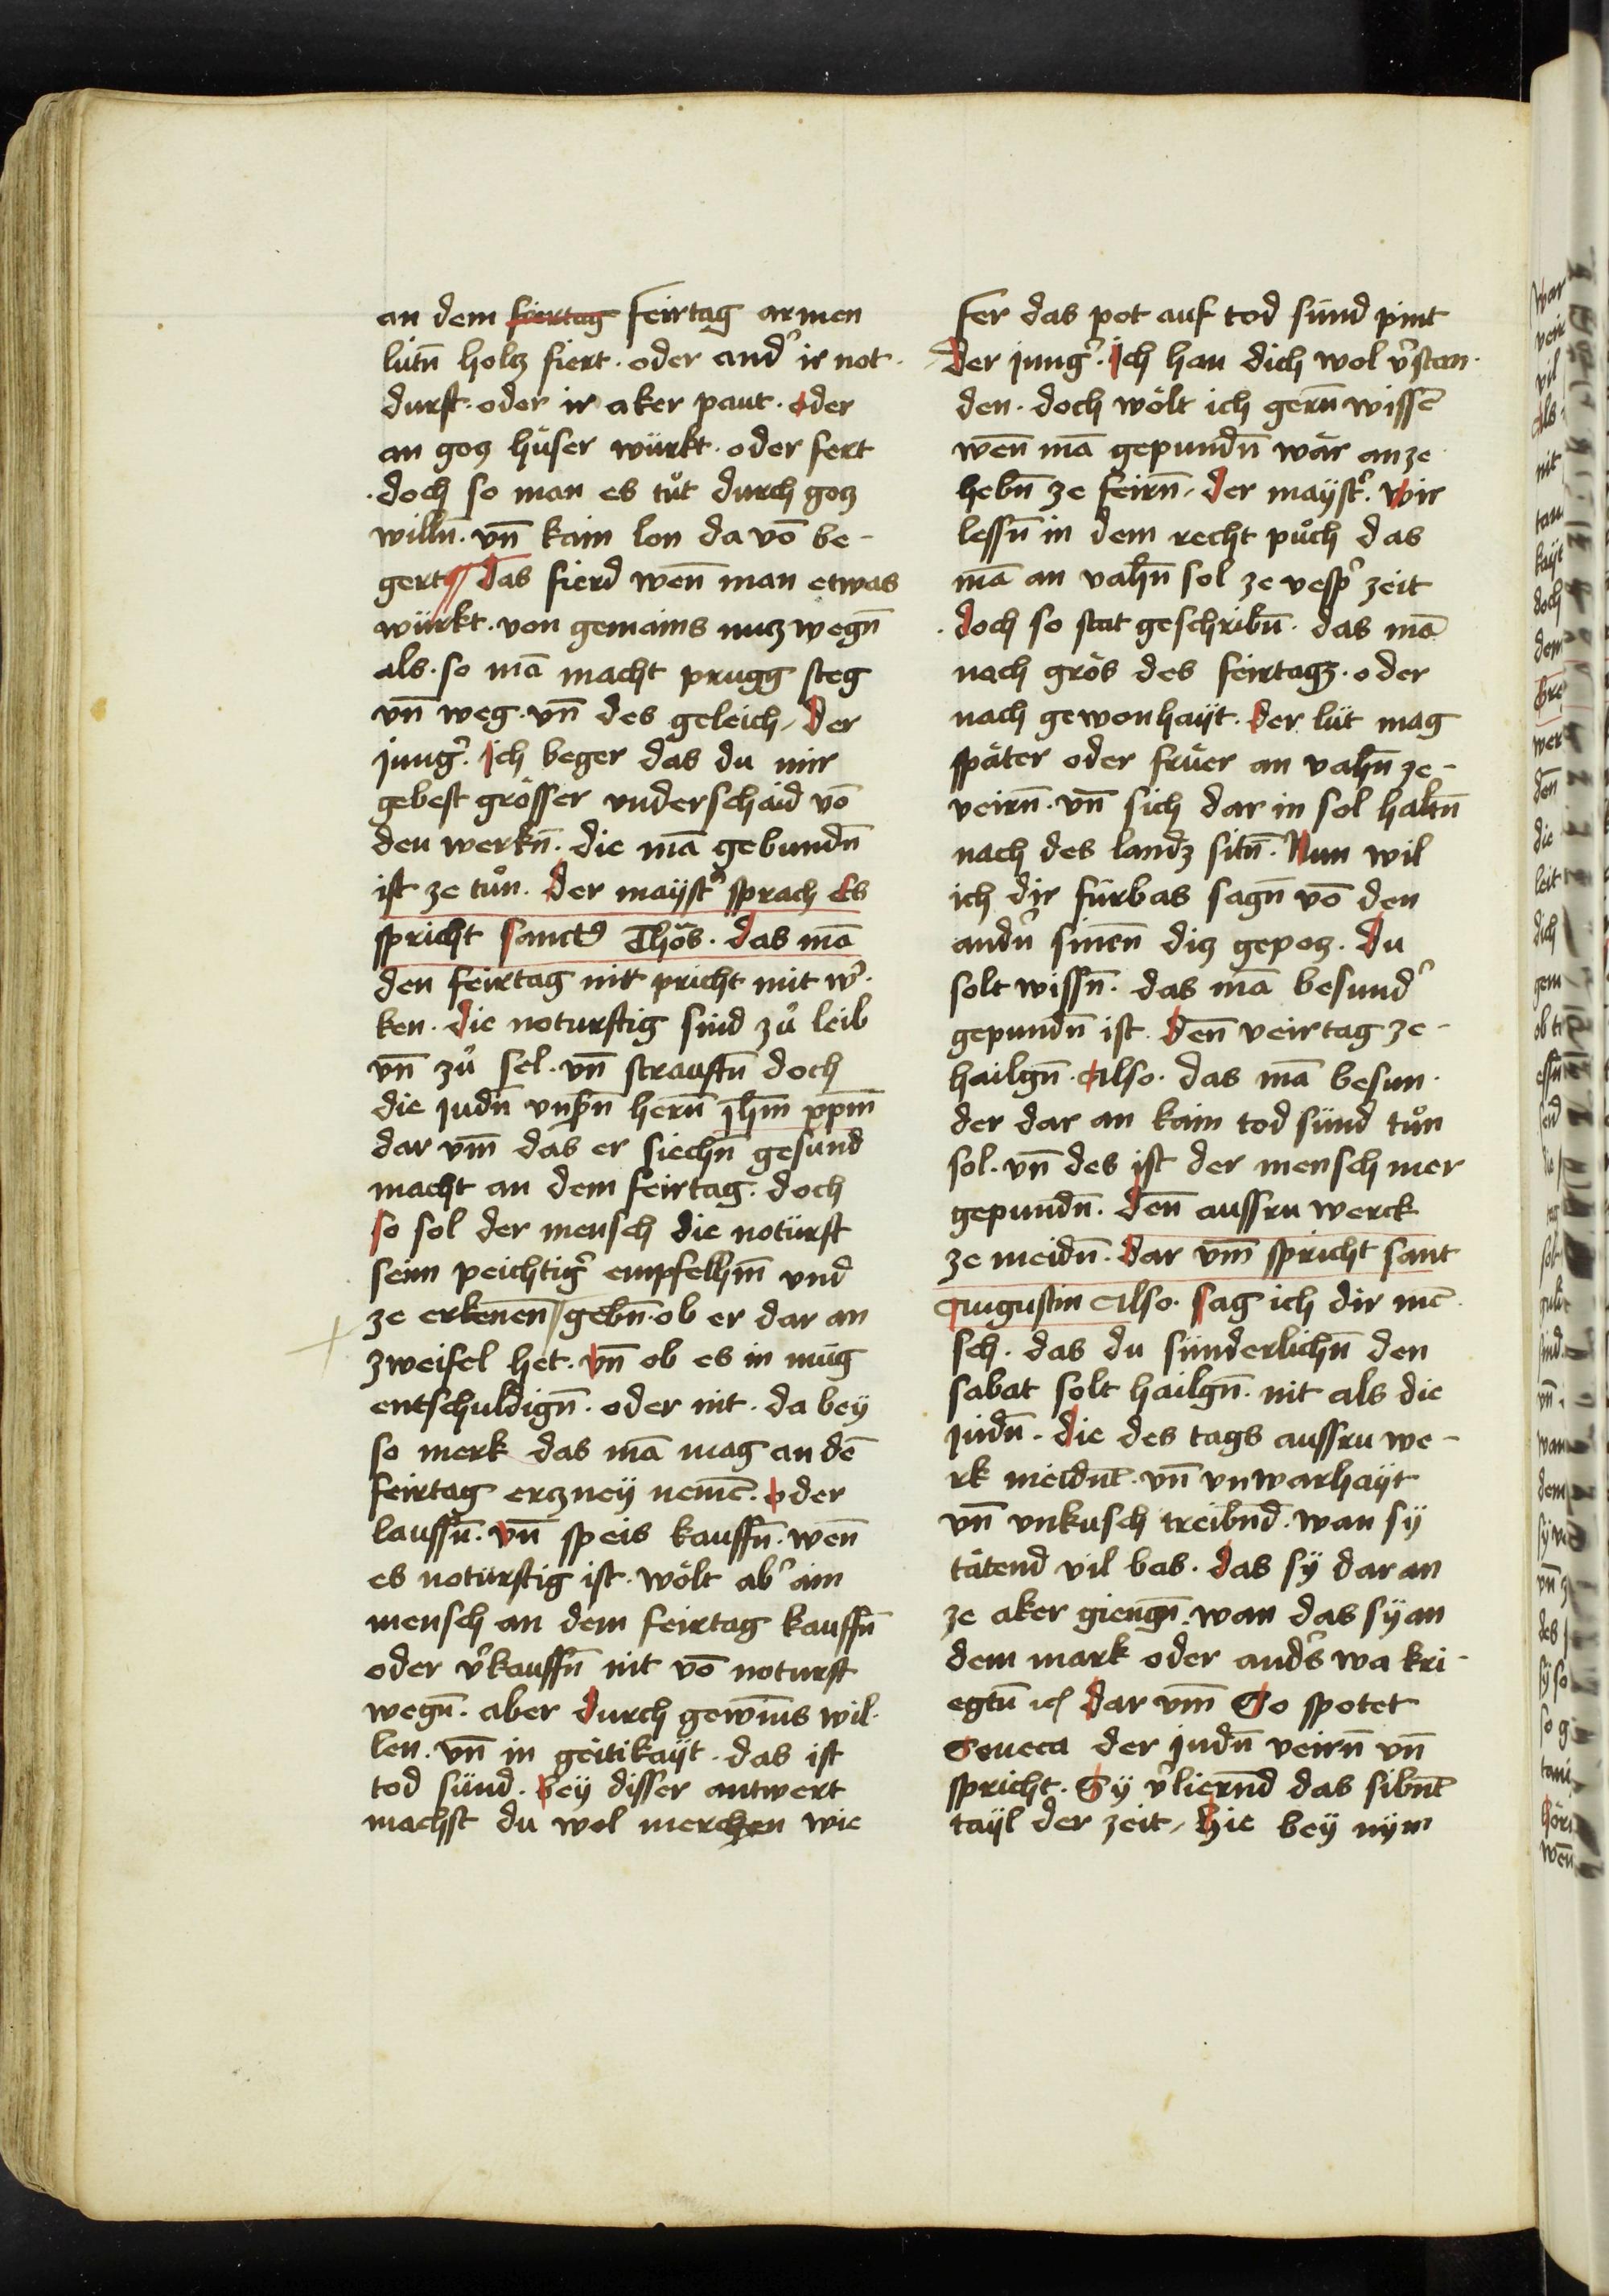 an dem feirtag feirtag armen
lütn̄ holtz fiert · oder and᷑ ir not·
durft · oder ir aker paut · oder
an gotz hüser würkt · oder fert
· doch so man es tůt durch gotz
willn̄ · vn̄ kain lon da vō be-
gert das fierd wen̄ man etwas
würkt · von gemains nutz wegn̄
als · so mā macht prugg steg
vn̄ weg · vn̄ des geleich / Der
jung᷑ · Ich beger das du mir
gebest grösser vnderschaid vō
den werkn̄ · die mā gebundn̄
ist ze tůn · Der mayst᷑ sprach Es
spricht sanctꝰ Thōs · das mā
den feirtag nit pricht mit w᷑·
ken · die noturftig sind zů leib
vn̄ zů sel · vn̄ strauftn̄ doch
die judn̄ vnßn̄ hern̄ jhm̄ xpm̄
dar vm̄ das er siechn̄ gesund
macht an dem feirtag · doch
so sol der mensch die notürft
seim peichtig᷑ empfelhn̄ vnd
ze erkenen̄ / gebn̄ · ob er dar an
zweifel het · vn̄ ob es in müg
entschuldign̄ · oder nit · da bey
so merk das mā mag an dē
feirtag ertzney nemē · oder
lauffn̄ · vn̄ speis kauffn̄ · wen̄
es notürftig ist · wölt ab᷑ ain
mensch an dem feirtag kauffn̄
oder v᷑kauffn̄ nit vō noturft
wegn̄ · aber durch gewin̄s wil·
len · vn̄ in geitikayt · das ist
tod sünd · bey disser antwert
machst du wol merchen wie
fer das pot auf tod sünd pint
Der jung᷑ · Ich han dich wol v᷑stan·
den · doch wölt ich gern̄ wissē
wen̄ mā gepundn̄ wär an ze
hebn̄ ze feirn̄ / der mayst᷑ · Wir
lessn̄ in dem recht půch das
mā an vahn̄ sol ze vesp᷑ zeit
· doch so stat geschribn̄ · das mā
nach grös des feirtagz · oder
nach gewonhayt · der lüt mag
später oder früer an vahn̄ ze-
veirn̄ · vn̄ sich dar in sol haltn̄
nach des landz sitn̄ · Nun wil
ich dir fürbas sagn̄ vō den
andn᷑ sinen̄ ditz gepotz · Du
solt wissn̄ · das mā besund᷑
gepundn̄ ist · den̄ veirtag ze-
hailgn̄ · Also · das mā besun·
der dar an kain tod sünd tůn
sol · vn̄ des ist der mensch mer
gepundn̄ · den̄ aussru werck
ze meidn̄ · Dar vm̄ spricht sant
Augustin Also · sag ich dir mē·
sch · das du sünderlichn̄ den
sabat solt hailgn̄ · nit als die
judn̄ · die des tags aussru we-
rk meidnt̄ · vn̄ vnwarhayt
vn̄ vnkusch treibnd̄ · wan sy
tätend vil bas · das sy dar an
ze aker giengn̄ · wan das sy an
dem mark oder and᷑s wa kri-
egtn̄ ⁊c Dar vm̄ So spotet
Seneca der judn̄ veirn̄ vn̄
spricht · Sy v᷑liernd̄ das sibnt̄
tayl der zeit / Hie bey nym